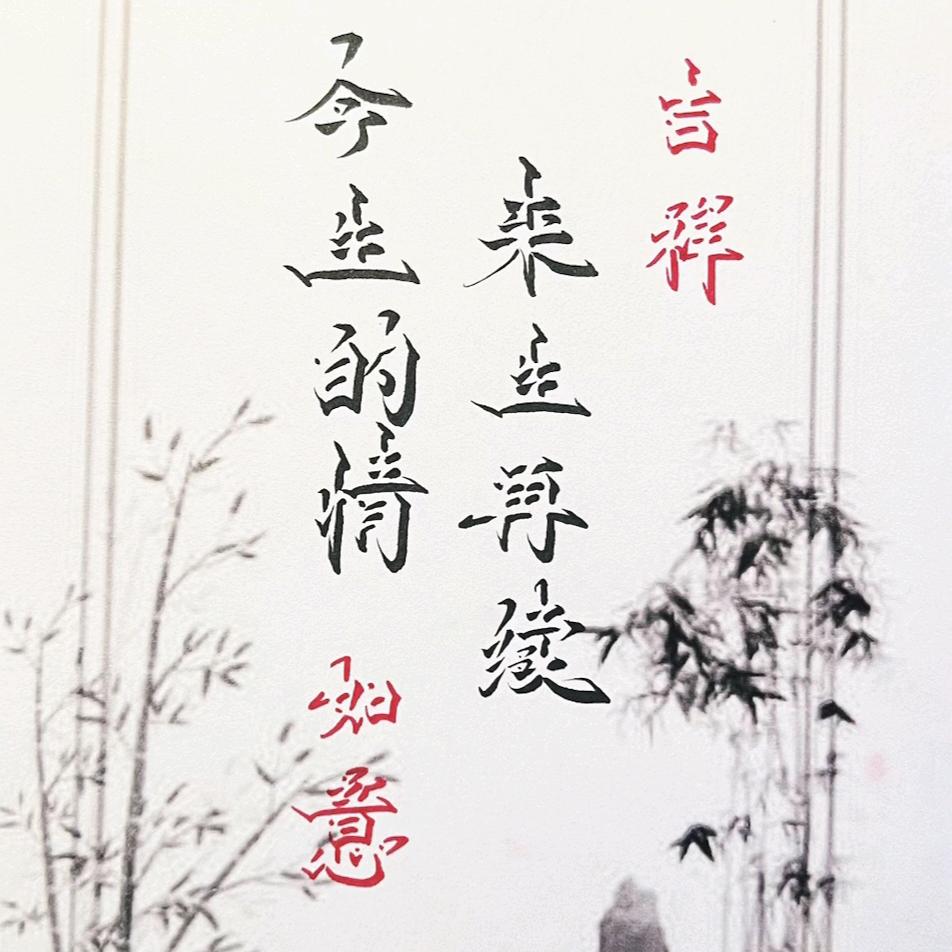 吉祥
来生再续
今生的情
如意